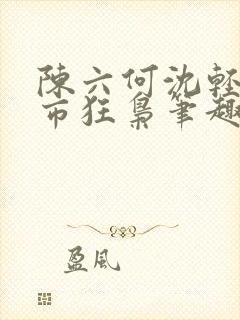 陳六何沈輕
市狂梟筆趣
盈風